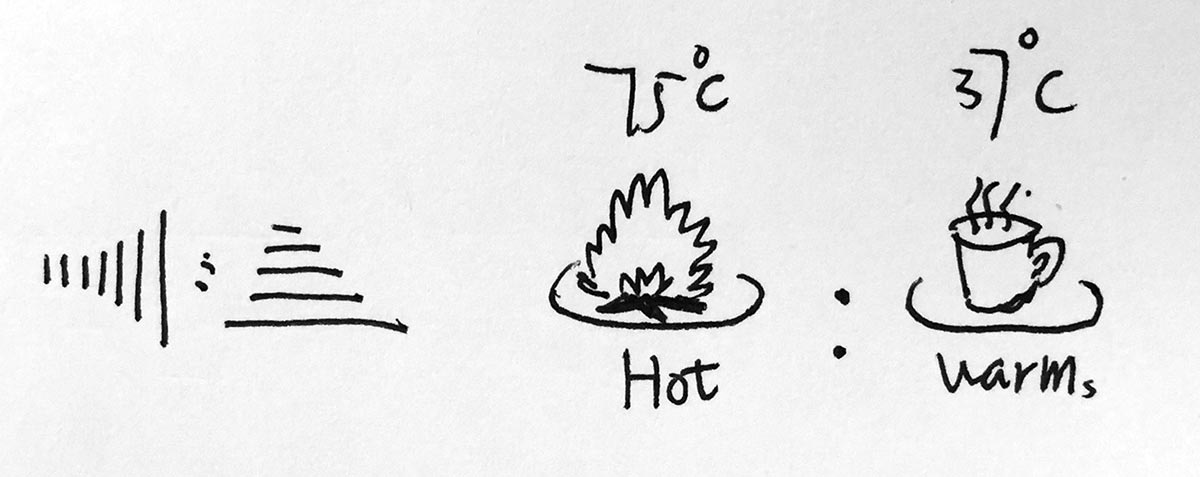 75°C 37°C
:
Hot warms